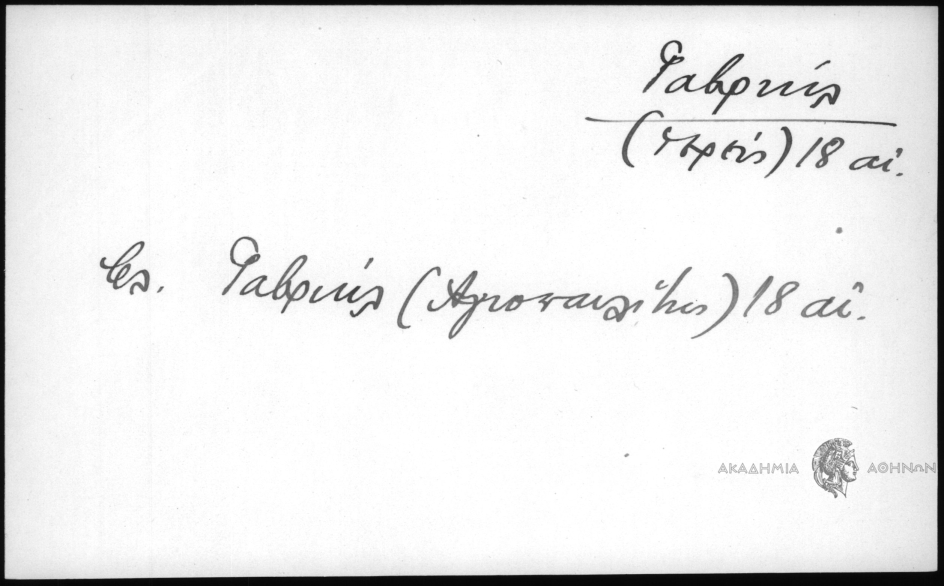 Γαβριήλ
( ) 18 αἰ.
βλ. Γαβριήλ (Ἁγιοταφίτης) 18 αἰ.
ΑΚΑΔΗΜΙΑ ΑΘΗΝΩΝ